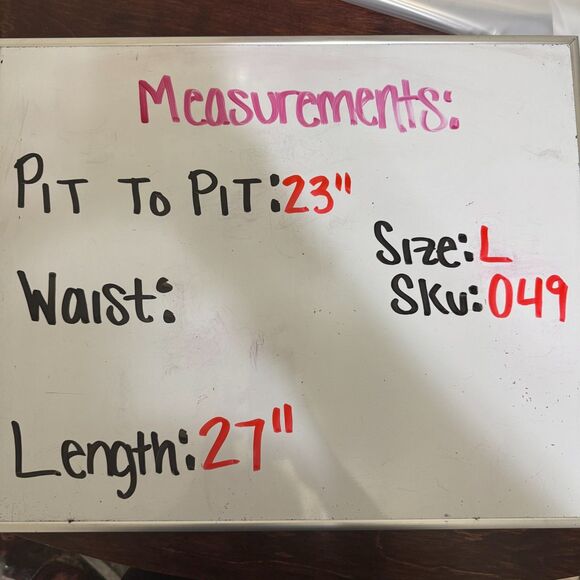 Measurements:
PIT TO PIT: 23"
Size: L
Waist:
SKU: 049
Length: 27"